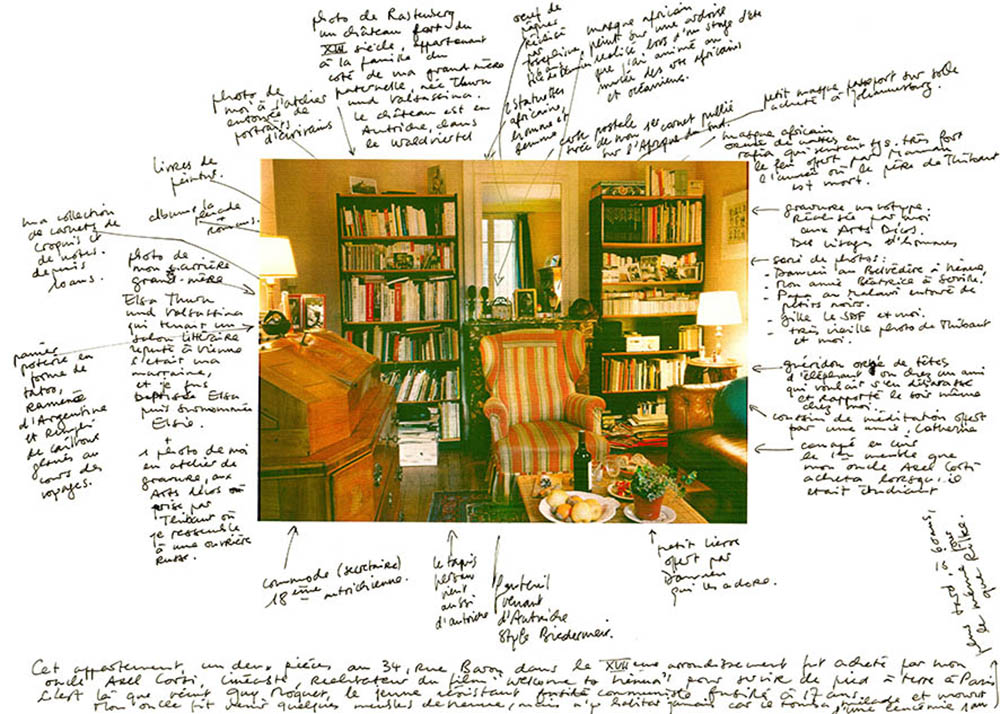 photo de Rastenberg
un château fort du
XIII siècle, appartenant
à la famille du
côté de ma grand-mère
paternelle née Thurn
und Valsassina.
le château est en
Autriche, dans
le Waldviertel
photo de
moi à l'atelier
entourée de
portraits
d'écrivains
livres de
peinture.
albums, la
romans.
ma collection
de carnets de
croquis et
de notes.
depuis
10 ans.
photo de
mon arrière
grand-mère
Elsa Thurn
und Valsassina
qui tenait un
salon littéraire
réputé à Vienne
c'était ma
marraine,
et je fus
baptisée Elsa
puis surnommée
Elsie.
+
1 photo de moi
en atelier de
gravure, aux
Arts Décos
prise par
Thibaut où
je ressemble
à une ouvrière
russe.
poterie en
forme de
tatoo,
ramenée
d'Argentine
et rempli
de cailloux
glanés au
cours des
voyages.
oeuf de
pâques
réalisé
par
Joséphine,
masque africain
peint sur une ardoise
réalisé lors d'un stage d'été
que j'ai animé au
musée des arts africains
et océaniens.
2 statuettes
africaine,
homme et
femme
carte postale
tirée de mon 1er carnet publié
sur l'Afrique du Sud.
petit masque passeport sur socle
acheté à Johannesburg.
masque africain
ornée de nattes en
rafia qui sentent tjs. très fort
le feu offert par
l'année où le père de Thibaut
est mort.
gravure
Réalisée par moi
aux Arts Décos.
Des visages d'hommes
serie de photos:
- Damien au Belvédère à Vienne,
- Mon amie Béatrice à Séville.
- Papa au Malawi entouré de
petits noirs.
- Gille le SDF et moi.
- très vieille photo de Thibaut
et moi.
guéridon orné de têtes
d'éléphant
qui voulait s'en débarasser
et rapporté le soir même
chez moi.
coussin de méditation offert
par une amie, Catherine
canapé en cuir
le 1er meuble que
mon oncle Axel Corti
acheta lorsqu'il
était étudiant
commode (secrétaire)
18ème autrichienne.
le tapis
persan
vient
aussi
d'autriche
fauteuil
venant
d'Autriche
style Biedermeier.
petit lierre
offert par
Damien
qui les adore.
Cet appartement, un deux pièces au 34, rue Baron dans le XVII ème arrondissement fut acheté par mon
oncle Axel Corti, cinéaste, réalisateur du film "Welcome to Vienna" pour servir de pied à terre à Paris
C'est là que vécut Guy Moquet, le jeune résistant communiste fusillé à 17 ans.
Mon oncle fit venir quelques meubles de Vienne, mais n'y habita jamais car il tomba malade et mourut
d'une leucémie 1 an
plus tard, à 60 ans,
le même
que Rilke.